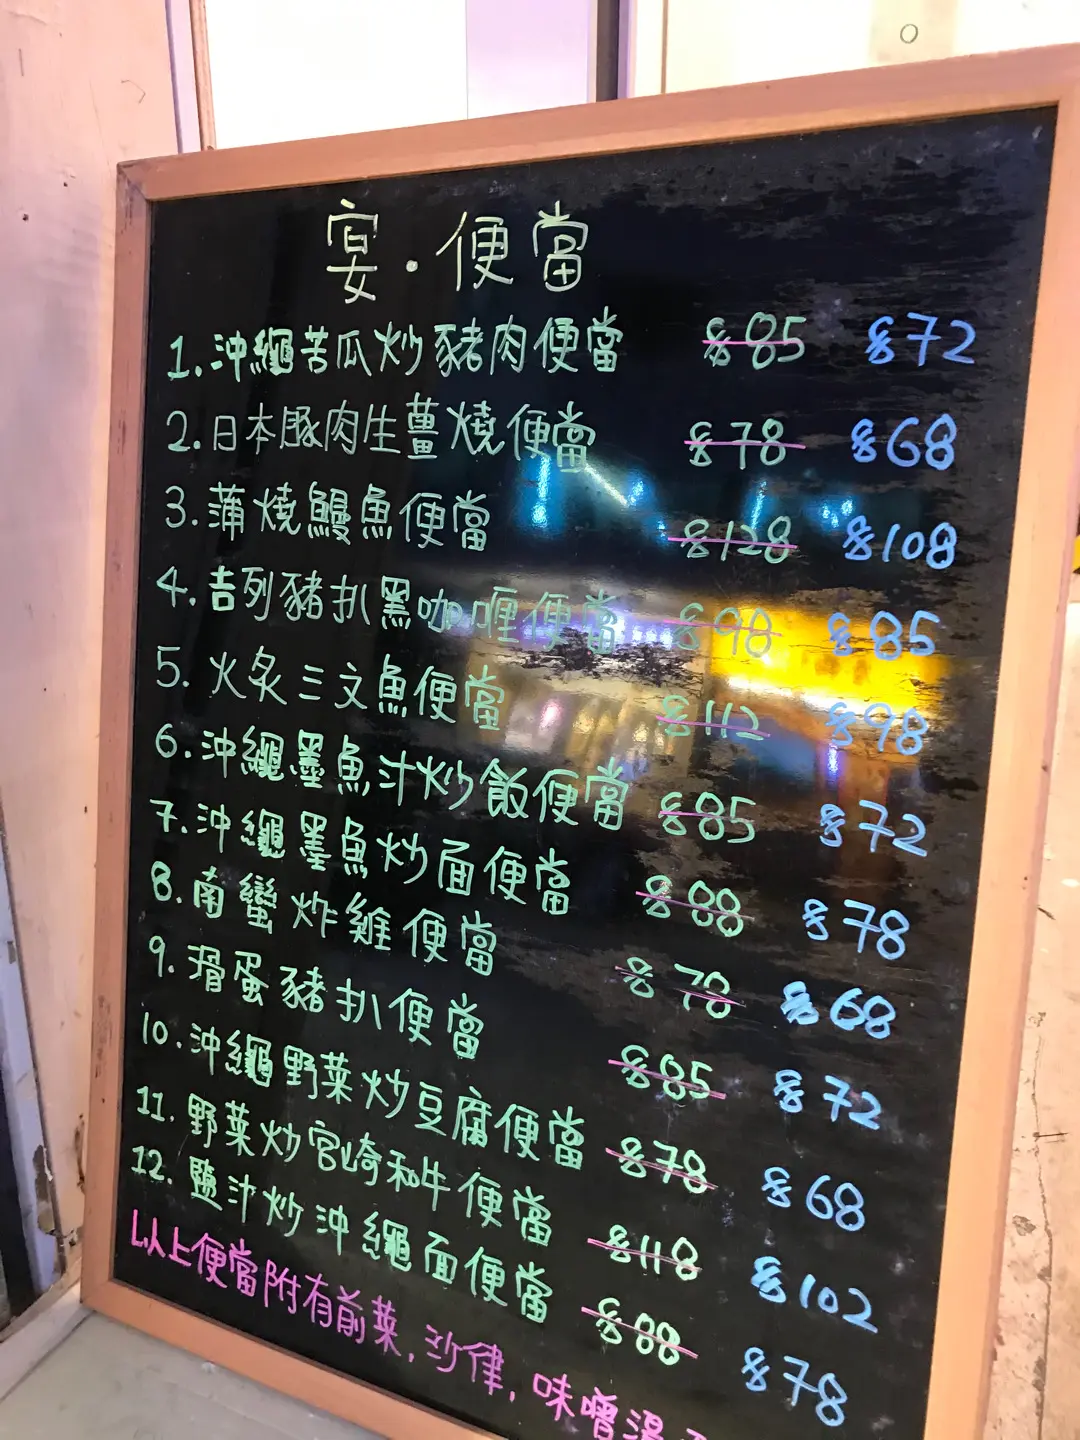 宴·便當
1. 沖繩苦瓜炒豬肉便當 $85 $72
2. 日本豚肉生薑燒便當 $78 $68
3. 蒲燒鰻魚便當 $128 $108
4. 吉列豬扒黑咖喱便當 $98 $85
5. 火炙三文魚便當 $112 $98
6. 沖繩墨魚汁炒飯便當 $85 $72
7. 沖繩墨魚炒面便當 $88 $78
8. 南蠻炸雞便當 $78 $68
9. 滑蛋豬扒便當 $85 $72
10. 沖繩野菜炒豆腐便當 $78 $68
11. 野菜炒宮崎和牛便當 $118 $102
12. 鹽汁炒沖繩面便當 $88 $78
以上便當附有前菜, 沙律, 味噌湯